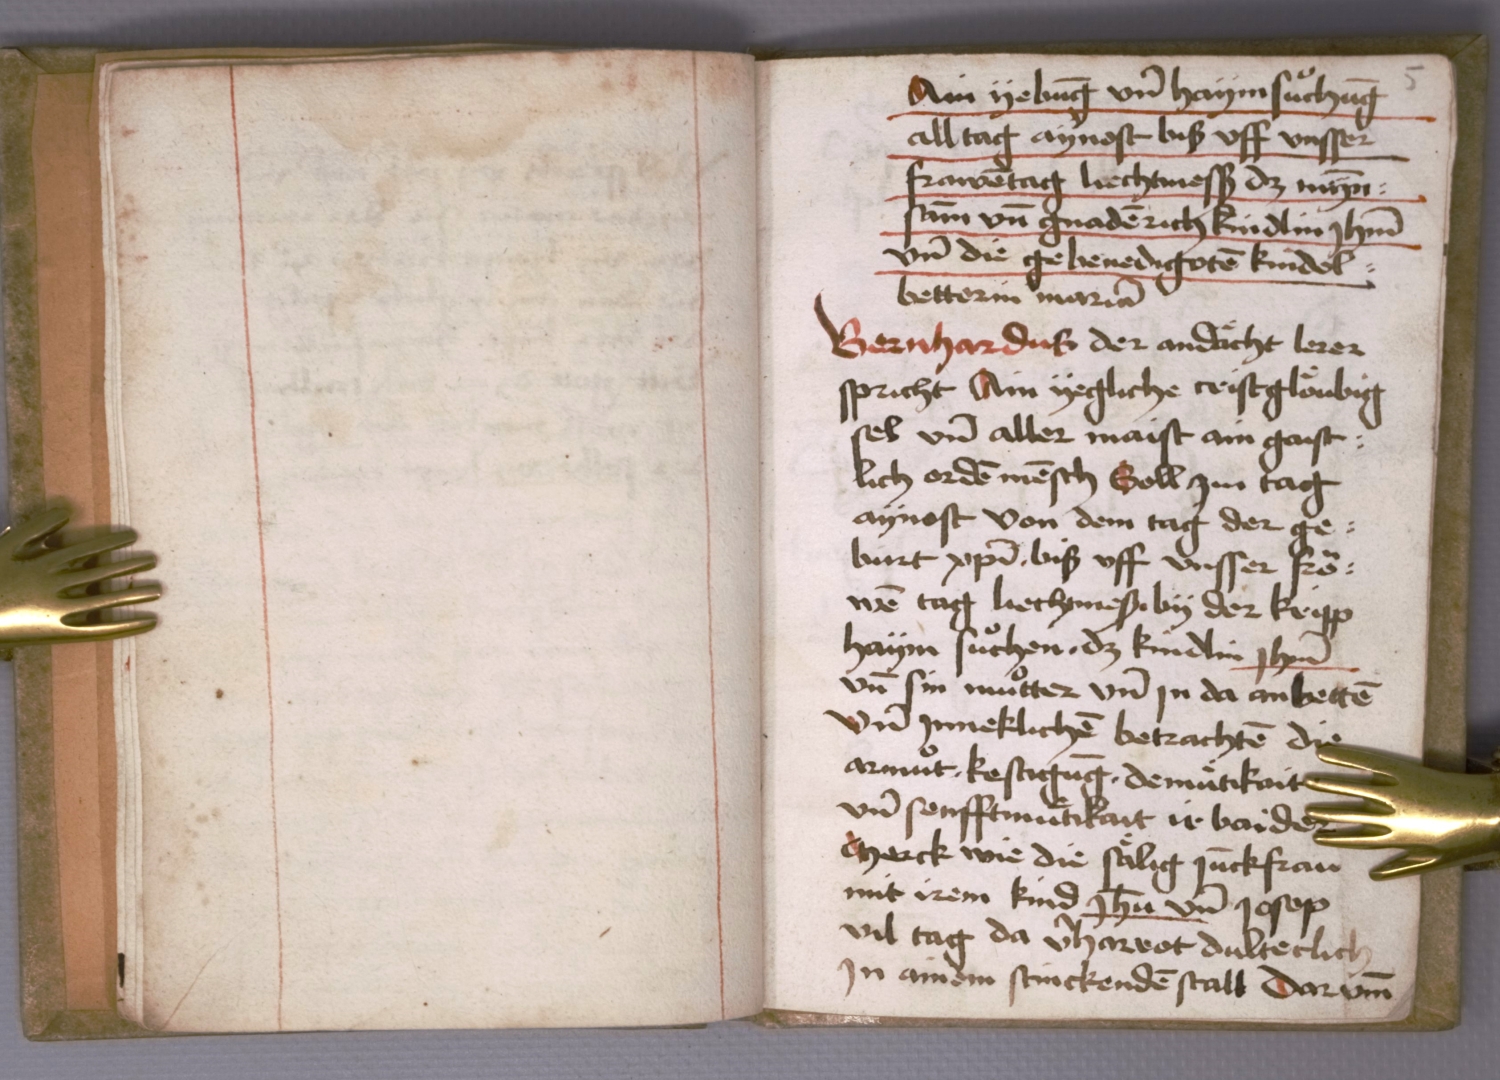 5
Ain yebūg vn̄ haymsuͦchūg
all tag aynost biß vff vnsser
frawētag liechtmess dz mȳn⸗
sam vn̄ gnadērich kindlin Jhm̄
vn̄ die gebenedigotē kindel⸗
betterin mariā
Bernhardus der andächt lerer
spricht Ain yegliche cristglöubig
sel vn̄ aller maist ain gaist⸗
lich ordē mēsch Soll zm tag
aynost von dem tag der ge⸗
burt xpī. biß vff vnsser frŏ⸗
wē tag liechtmeß. by der kripp
haym suͦchen. dz kindlin Jhm̄
vn̄ sin muͦtter vn̄ in da anbettē
vn̄ Inneklichē betrachtē die
armuͦt. kestigūg. demütikait
vn̄ senfftmütikait ir baider
Merck wie die sälig junckfrau
mit irem kind Jhū vn̄ Josep
vil tag da v̄harrot dulteclich
In ainem stinckendē stall Dar vm̄